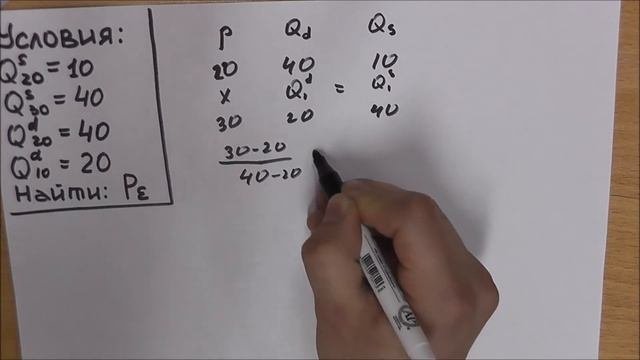 Условия:
Qˢ₂₀ = 10
Qˢ₃₀ = 40
Qᵈ₂₀ = 40
Qᵈ₁₀ = 20
Найти: Pε
P Qd Qs
20 40 10
x Qᵈ₁ = Qˢ₁
30 20 40
30-20
40-20